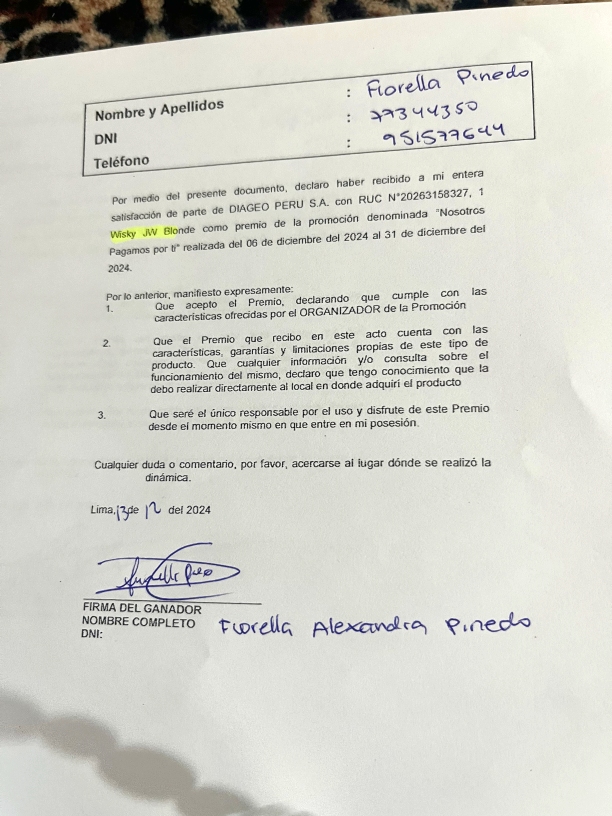 Nombre y Apellidos : Fiorella Pinedo
DNI : 77344350
Teléfono : 951577644
Por medio del presente documento, declaro haber recibido a mi entera
satisfacción de parte de DIAGEO PERU S.A. con RUC N°20263158327, 1
Wisky JW Blonde como premio de la promoción denominada "Nosotros
Pagamos por ti" realizada del 06 de diciembre del 2024 al 31 de diciembre del
2024.
Por lo anterior, manifiesto expresamente:
1. Que acepto el Premio, declarando que cumple con las
características ofrecidas por el ORGANIZADOR de la Promoción
2. Que el Premio que recibo en este acto cuenta con las
características, garantías y limitaciones propias de este tipo de
producto. Que cualquier información y/o consulta sobre el
funcionamiento del mismo, declaro que tengo conocimiento que la
debo realizar directamente al local en donde adquirí el producto
3. Que seré el único responsable por el uso y disfrute de este Premio
desde el momento mismo en que entre en mi posesión.
Cualquier duda o comentario, por favor, acercarse al lugar dónde se realizó la
dinámica.
Lima, 13 de 12 del 2024
FIRMA DEL GANADOR
NOMBRE COMPLETO Fiorella Alexandra Pinedo
DNI: